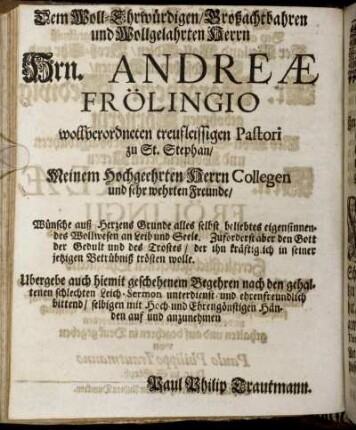 Dem Woll-Ehrwürdigen/Großachtbahren
und Wollgelahrten Herrn
Hrn. ANDREÆ
FRÖLINGIO
wollverordneten treufleissigen Pastori
zu St. Stephan/
Meinem Hochgeehrten Herrn Collegen
und sehr wehrten Freunde/
Wünsche auß Herzens Grunde alles selbst beliebtes eigensinnen-
des Wollwesen an Leib und Seele. Zuforderst aber den Gott
der Gedult und des Trostes/ der ihn kräftiglich in seiner
jetzigen Betrübniß trösten wolle.
Ubergebe auch hiemit geschehenem Begehren nach den gehal-
tenen schlechten Leich-Sermon unterdienst- und ehrenfreundlich
bittend/ selbigen mit Hoch und Ehrengünstigen Hän-
den auf und anzunehmen
Paul Philip Trautmann.